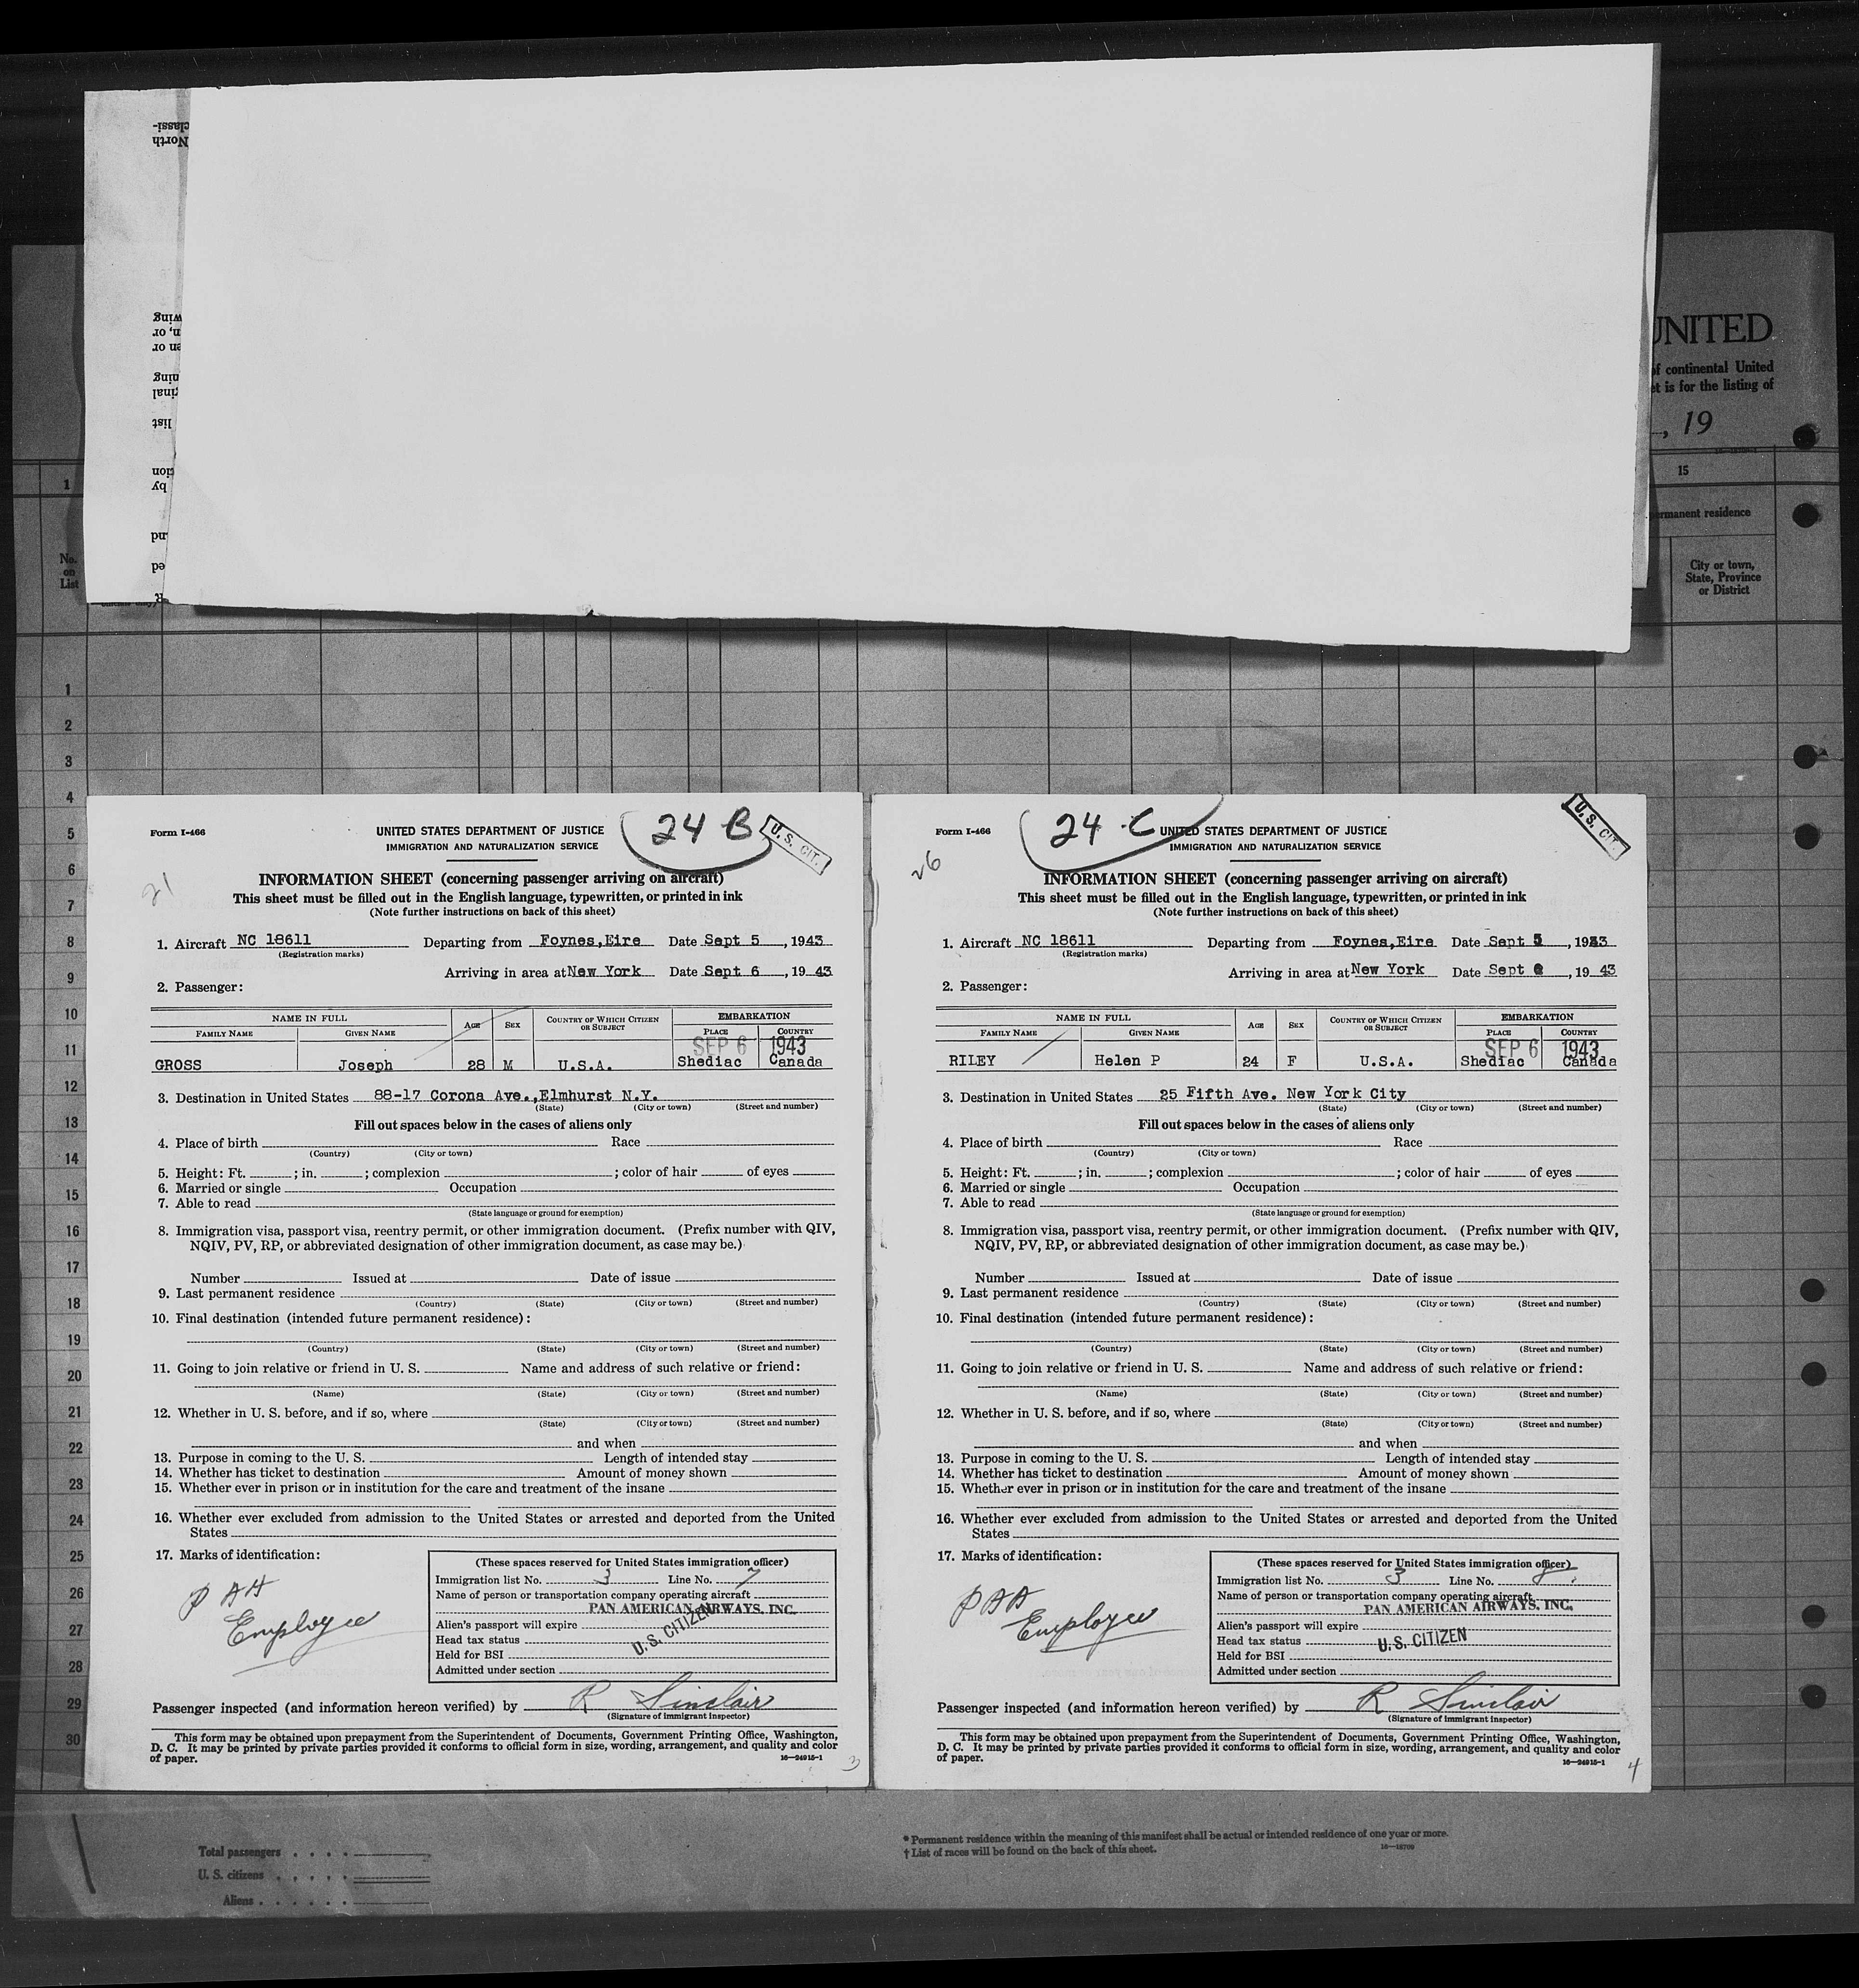 classi-
North
wing
n, or
en or
ning
ginal
list
tion
by
nd
ed
UNITED
of continental United
et is for the listing of
, 19
1
15
permanent residence
No.
on
List
City or town,
State, Province
or District
1
2
3
4
5
6
7
8
9
10
11
12
13
14
15
16
17
18
19
20
21
22
23
24
25
26
27
28
29
30
24 B
U. S. CIT.
21
Form I-466
UNITED STATES DEPARTMENT OF JUSTICE
IMMIGRATION AND NATURALIZATION SERVICE
INFORMATION SHEET (concerning passenger arriving on aircraft)
This sheet must be filled out in the English language, typewritten, or printed in ink
(Note further instructions on back of this sheet)
1. Aircraft NC 18611 Departing from Foynes,Eire Date Sept 5, 1943
(Registration marks)
Arriving in area at New York Date Sept 6, 19 43
2. Passenger:
NAME IN FULL AGE SEX COUNTRY OF WHICH CITIZEN OR SUBJECT EMBARKATION
FAMILY NAME GIVEN NAME PLACE COUNTRY
SEP 6 1943
GROSS Joseph 28 M U.S.A. Shediac Canada
3. Destination in United States 88-17 Corona Ave.,Elmhurst N.Y.
(State) (City or town) (Street and number)
Fill out spaces below in the cases of aliens only
4. Place of birth Race
(Country) (City or town)
5. Height: Ft. ; in. ; complexion ; color of hair of eyes
6. Married or single Occupation
7. Able to read
(State language or ground for exemption)
8. Immigration visa, passport visa, reentry permit, or other immigration document. (Prefix number with QIV,
NQIV, PV, RP, or abbreviated designation of other immigration document, as case may be.)
Number Issued at Date of issue
9. Last permanent residence
(Country) (State) (City or town) (Street and number)
10. Final destination (intended future permanent residence):
(Country) (State) (City or town) (Street and number)
11. Going to join relative or friend in U. S. Name and address of such relative or friend:
(Name) (State) (City or town) (Street and number)
12. Whether in U. S. before, and if so, where
(State) (City or town) (Street and number)
and when
13. Purpose in coming to the U. S. Length of intended stay
14. Whether has ticket to destination Amount of money shown
15. Whether ever in prison or in institution for the care and treatment of the insane
16. Whether ever excluded from admission to the United States or arrested and deported from the United
States
17. Marks of identification:
PAA
Employee
(These spaces reserved for United States immigration officer)
Immigration list No. 3 Line No. 7
Name of person or transportation company operating aircraft
PAN AMERICAN AIRWAYS. INC.
Alien's passport will expire
Head tax status
U.S. CITIZEN
Held for BSI
Admitted under section
Passenger inspected (and information hereon verified) by R Sinclair
(Signature of immigrant inspector)
This form may be obtained upon prepayment from the Superintendent of Documents, Government Printing Office, Washington,
D. C. It may be printed by private parties provided it conforms to official form in size, wording, arrangement, and quality and color
of paper.
16—24915-1
3
24 C
U. S. CIT.
26
Form I-466
UNITED STATES DEPARTMENT OF JUSTICE
IMMIGRATION AND NATURALIZATION SERVICE
INFORMATION SHEET (concerning passenger arriving on aircraft)
This sheet must be filled out in the English language, typewritten, or printed in ink
(Note further instructions on back of this sheet)
1. Aircraft NC 18611 Departing from Foynes,Eire Date Sept 5, 1943
(Registration marks)
Arriving in area at New York Date Sept 6, 19 43
2. Passenger:
NAME IN FULL AGE SEX COUNTRY OF WHICH CITIZEN OR SUBJECT EMBARKATION
FAMILY NAME GIVEN NAME PLACE COUNTRY
SEP 6 1943
RILEY Helen P 24 F U.S.A. Shediac Canada
3. Destination in United States 25 Fifth Ave. New York City
(State) (City or town) (Street and number)
Fill out spaces below in the cases of aliens only
4. Place of birth Race
(Country) (City or town)
5. Height: Ft. ; in. ; complexion ; color of hair of eyes
6. Married or single Occupation
7. Able to read
(State language or ground for exemption)
8. Immigration visa, passport visa, reentry permit, or other immigration document. (Prefix number with QIV,
NQIV, PV, RP, or abbreviated designation of other immigration document, as case may be.)
Number Issued at Date of issue
9. Last permanent residence
(Country) (State) (City or town) (Street and number)
10. Final destination (intended future permanent residence):
(Country) (State) (City or town) (Street and number)
11. Going to join relative or friend in U. S. Name and address of such relative or friend:
(Name) (State) (City or town) (Street and number)
12. Whether in U. S. before, and if so, where
(State) (City or town) (Street and number)
and when
13. Purpose in coming to the U. S. Length of intended stay
14. Whether has ticket to destination Amount of money shown
15. Whether ever in prison or in institution for the care and treatment of the insane
16. Whether ever excluded from admission to the United States or arrested and deported from the United
States
17. Marks of identification:
PAA
Employee
(These spaces reserved for United States immigration officer)
Immigration list No. 3 Line No. 8
Name of person or transportation company operating aircraft
PAN AMERICAN AIRWAYS. INC.
Alien's passport will expire
Head tax status
U.S. CITIZEN
Held for BSI
Admitted under section
Passenger inspected (and information hereon verified) by R Sinclair
(Signature of immigrant inspector)
This form may be obtained upon prepayment from the Superintendent of Documents, Government Printing Office, Washington,
D. C. It may be printed by private parties provided it conforms to official form in size, wording, arrangement, and quality and color
of paper.
16—24915-1
4
Total passengers
U. S. citizens
Aliens
* Permanent residence within the meaning of this manifest shall be actual or intended residence of one year or more.
† List of races will be found on the back of this sheet.
16—18709